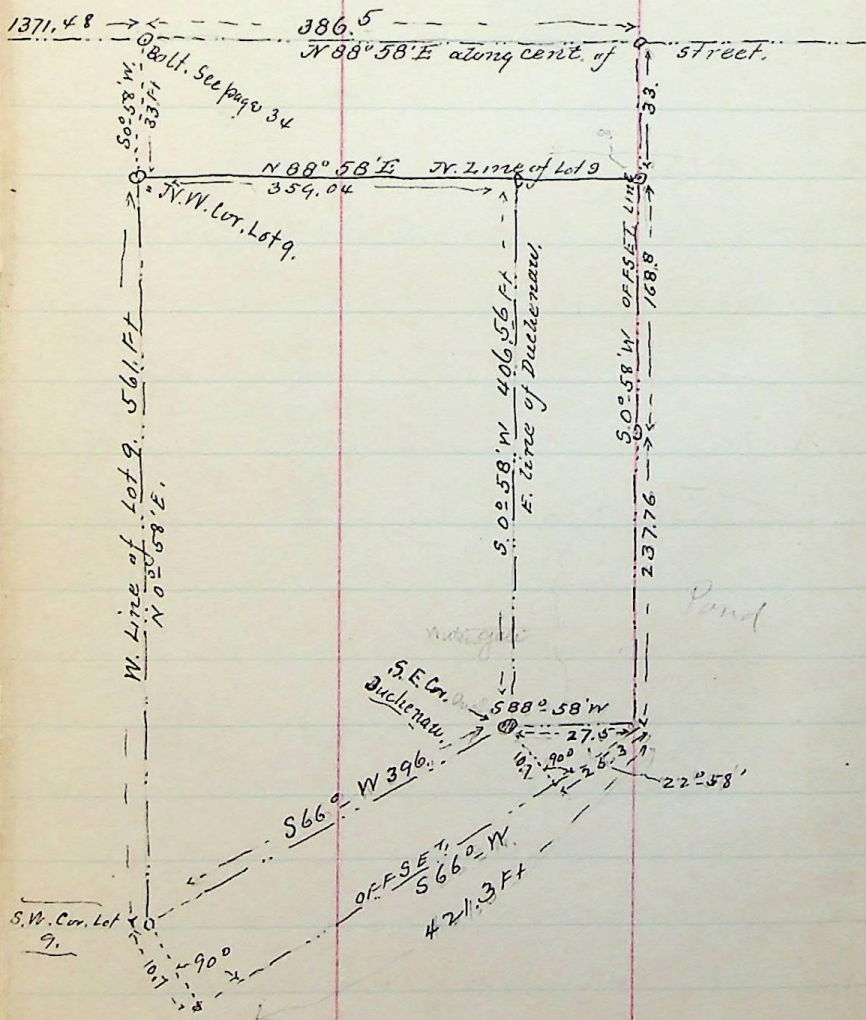 1371.48
386.5
N 88° 58' E along cent. of street.
Bolt. See page 34
S 0° 58' W.
33 Ft
33.
N 88° 58' E N. Line of Lot 9
359.04
N.W. Cor. Lot 9.
W. Line of Lot 9. 561. Ft
N 0° 58' E.
S. 0° 58' W 406.56 Ft
E. line of Duchenaw.
S. 0° 58' W OFFSET LINE
168.8
237.76
Pond
S.E. Cor.
Duchenaw.
S 88° 58' W
27.5
10.7
90°
25.3
22° 58'
S 66° W 396.
OFFSET
S 66° W.
421.3 Ft
S.W. Cor. Lot
9.
10.7
90°